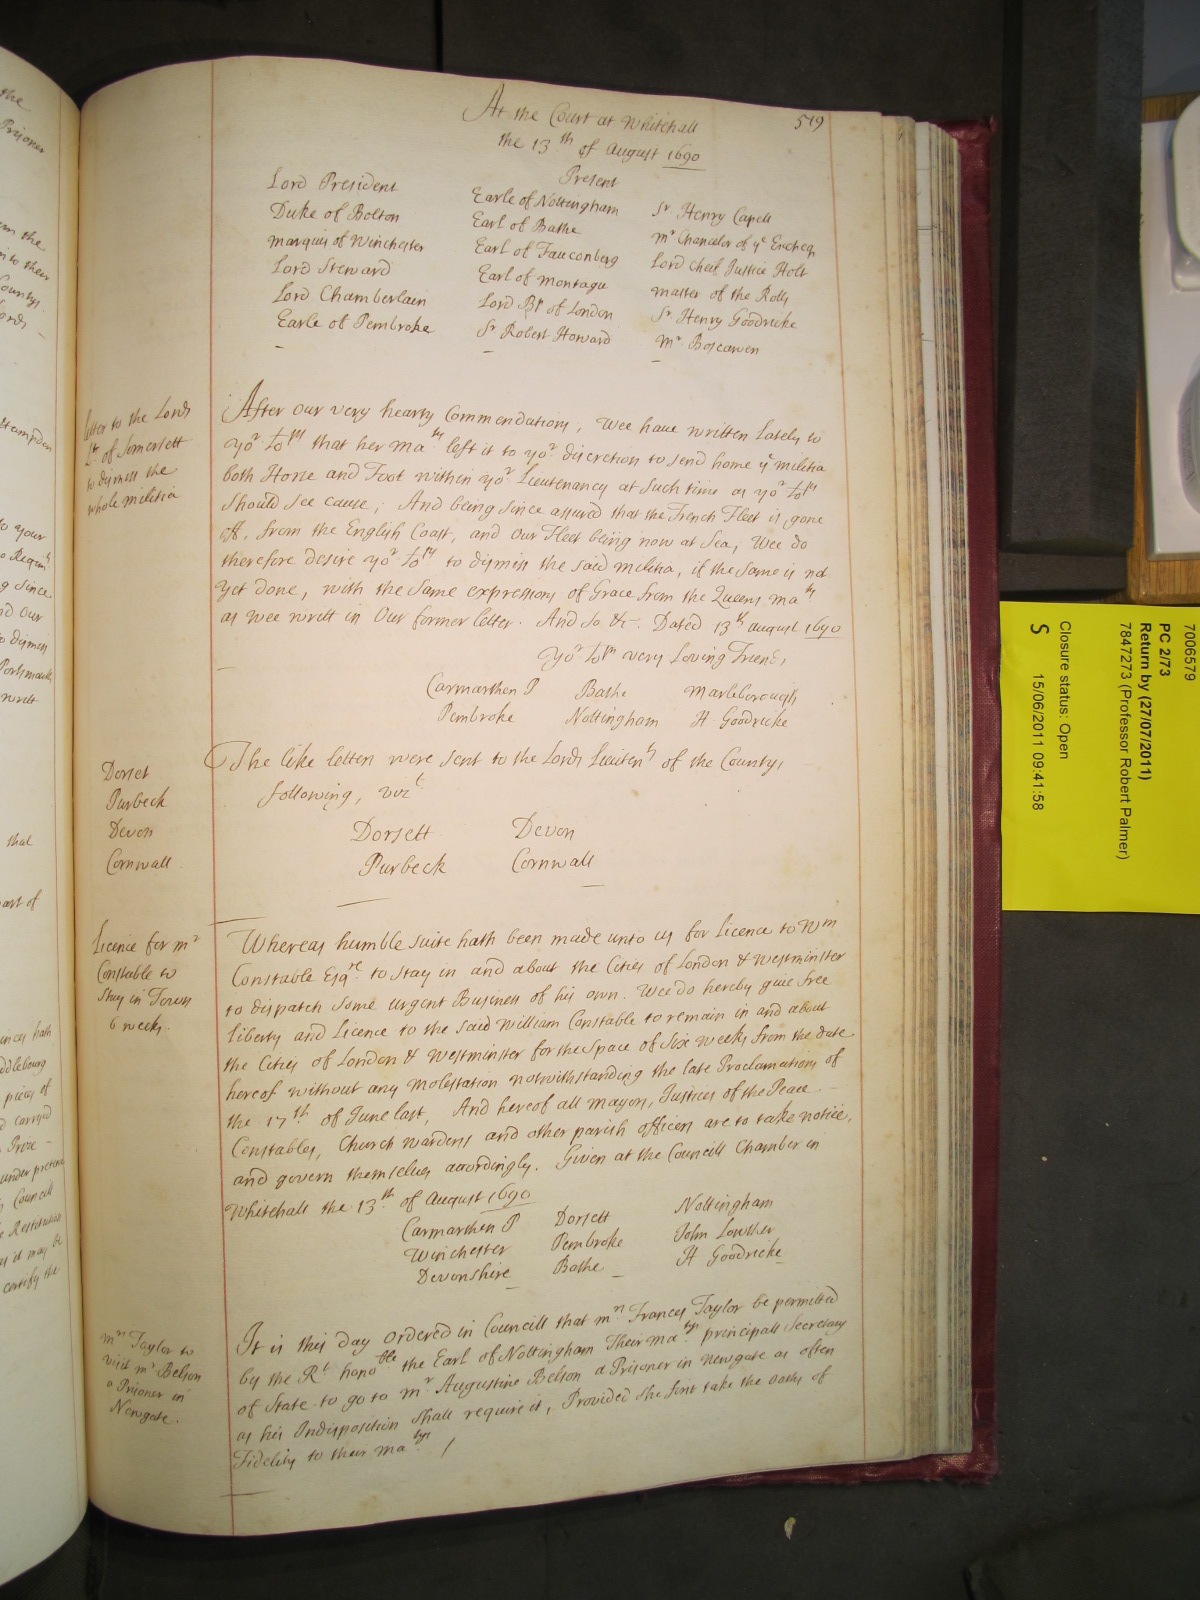 519
At the Court at Whitehall
the 13th of August 1690
Present
Lord President
Duke of Bolton
Marquis of Winchester
Lord Steward
Lord Chamberlain
Earle of Pembroke
Earle of Nottingham
Earl of Bathe
Earl of Fauconberg
Earl of Montagu
Lord Bp of London
Sr Robert Howard
Sr Henry Capell
Mr Chancelor of ye Excheqr
Lord cheif Justice Holt
Master of the Rolls
Sr Henry Goodricke
Mr Boscawen
Letter to the Lords
Lts of Somersett
to dismiss the
whole militia
After Our very hearty Commendations, Wee have written lately to
yor Lopp that her Maty left it to yor discretion to send home ye militia
both Horse and Foot within yor Lieutenancy at such time as yor Lopp
should see cause; And being since assured that the French Fleet is gone
off, from the English Coast, and Our Fleet being now at Sea, Wee do
therefore desire yor Lopp to dismiss the said militia, if the same is not
yet done, with the same expressions of Grace from the Queens Maty
as wee writt in Our former letter. And so &c. Dated 13th August 1690
Yor Lopps very Loving Friends
Carmarthen P Bathe Marleborough
Pembroke Nottingham H Goodricke
Dorset
Purbeck
Devon
Cornwall
The like letters were sent to the Lords Lieutents of the Countys
following, vizt
Dorsett Devon
Purbeck Cornwall
Licence for Mr
Constable to
Stay in Town
6 weeks.
Whereas humble suite hath been made unto us for Licence to Wm
Constable Esqre to stay in and about the Cities of London & Westminster
to dispatch some urgent Business of his own. Wee do hereby give free
liberty and Licence to the said William Constable to remain in and about
the Cities of London & Westminster for the Space of Six Weeks from the date
hereof without any Molestation notwithstanding the late Proclamations of
the 17th of June last, And hereof all Mayors, Justices of the Peace
Constables, Church wardens and other parish officers are to take notice,
and govern themselves accordingly. Given at the Councill Chamber in
Whitehall the 13th of August 1690
Carmarthen P Dorsett Nottingham
Winchester Pembroke John Lowther
Devonshire Bathe H Goodricke
Mrs Taylor to
visit Mr Belson
a Prisoner in
Newgate.
It is this day Ordered in Councill that Mrs Frances Taylor be permitted
by the Rt honoble the Earl of Nottingham Their Matys principall Secretary
of State to go to Mr Augustine Belson a Prisoner in Newgate as often
as his Indisposition shall require it, Provided she first take the Oaths of
Fidelity to their Matys /
7006579
PC 2/73
Return by (27/07/2011)
7847273 (Professor Robert Palmer)
Closure status: Open
S 15/06/2011 09:41:58